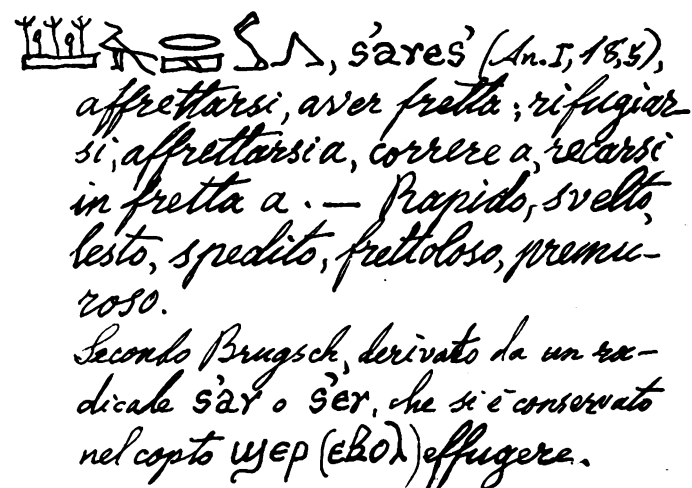 , s'ares' (An. I, 18,5),
affrettarsi, aver fretta; rifugiar
si, affrettarsi a, correre a, recarsi
in fretta a. — Rapido, svelto,
lesto, spedito, frettoloso, premu-
roso.
Secondo Brugsch, derivato da un ra-
dicale s'ar o s'er, che si è conservato
nel copto ϣερ (εβολ) effugere.